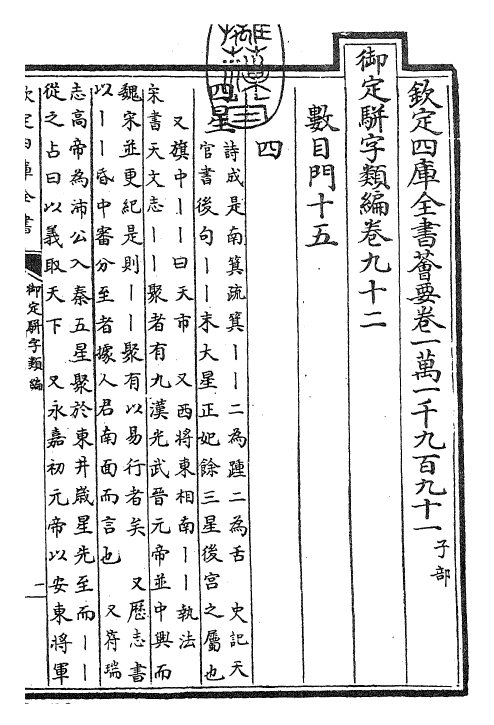 欽定四庫全書薈要卷一萬一千九百九十一 子部
御定駢字類編卷九十二
數目門十五
四
四星 詩成是南箕疏箕丨丨二為踵二為舌 史記天
官書後句丨丨末大星正妃餘三星後宫之屬也
又旗中丨丨曰天市 又西將東相南丨丨執法
宋書天文志丨丨聚者有九漢光武晉元帝並中興而
魏宋並更紀是則丨丨聚有以易行者矣 又歴志書
以丨丨昏中審分至者據人君南面而言也 又符瑞
志高帝為沛公入秦五星聚於東井歳星先至而丨丨
從之占曰以義取天下 又永嘉初元帝以安東將軍
欽定四庫全書
御定駢字類編
一